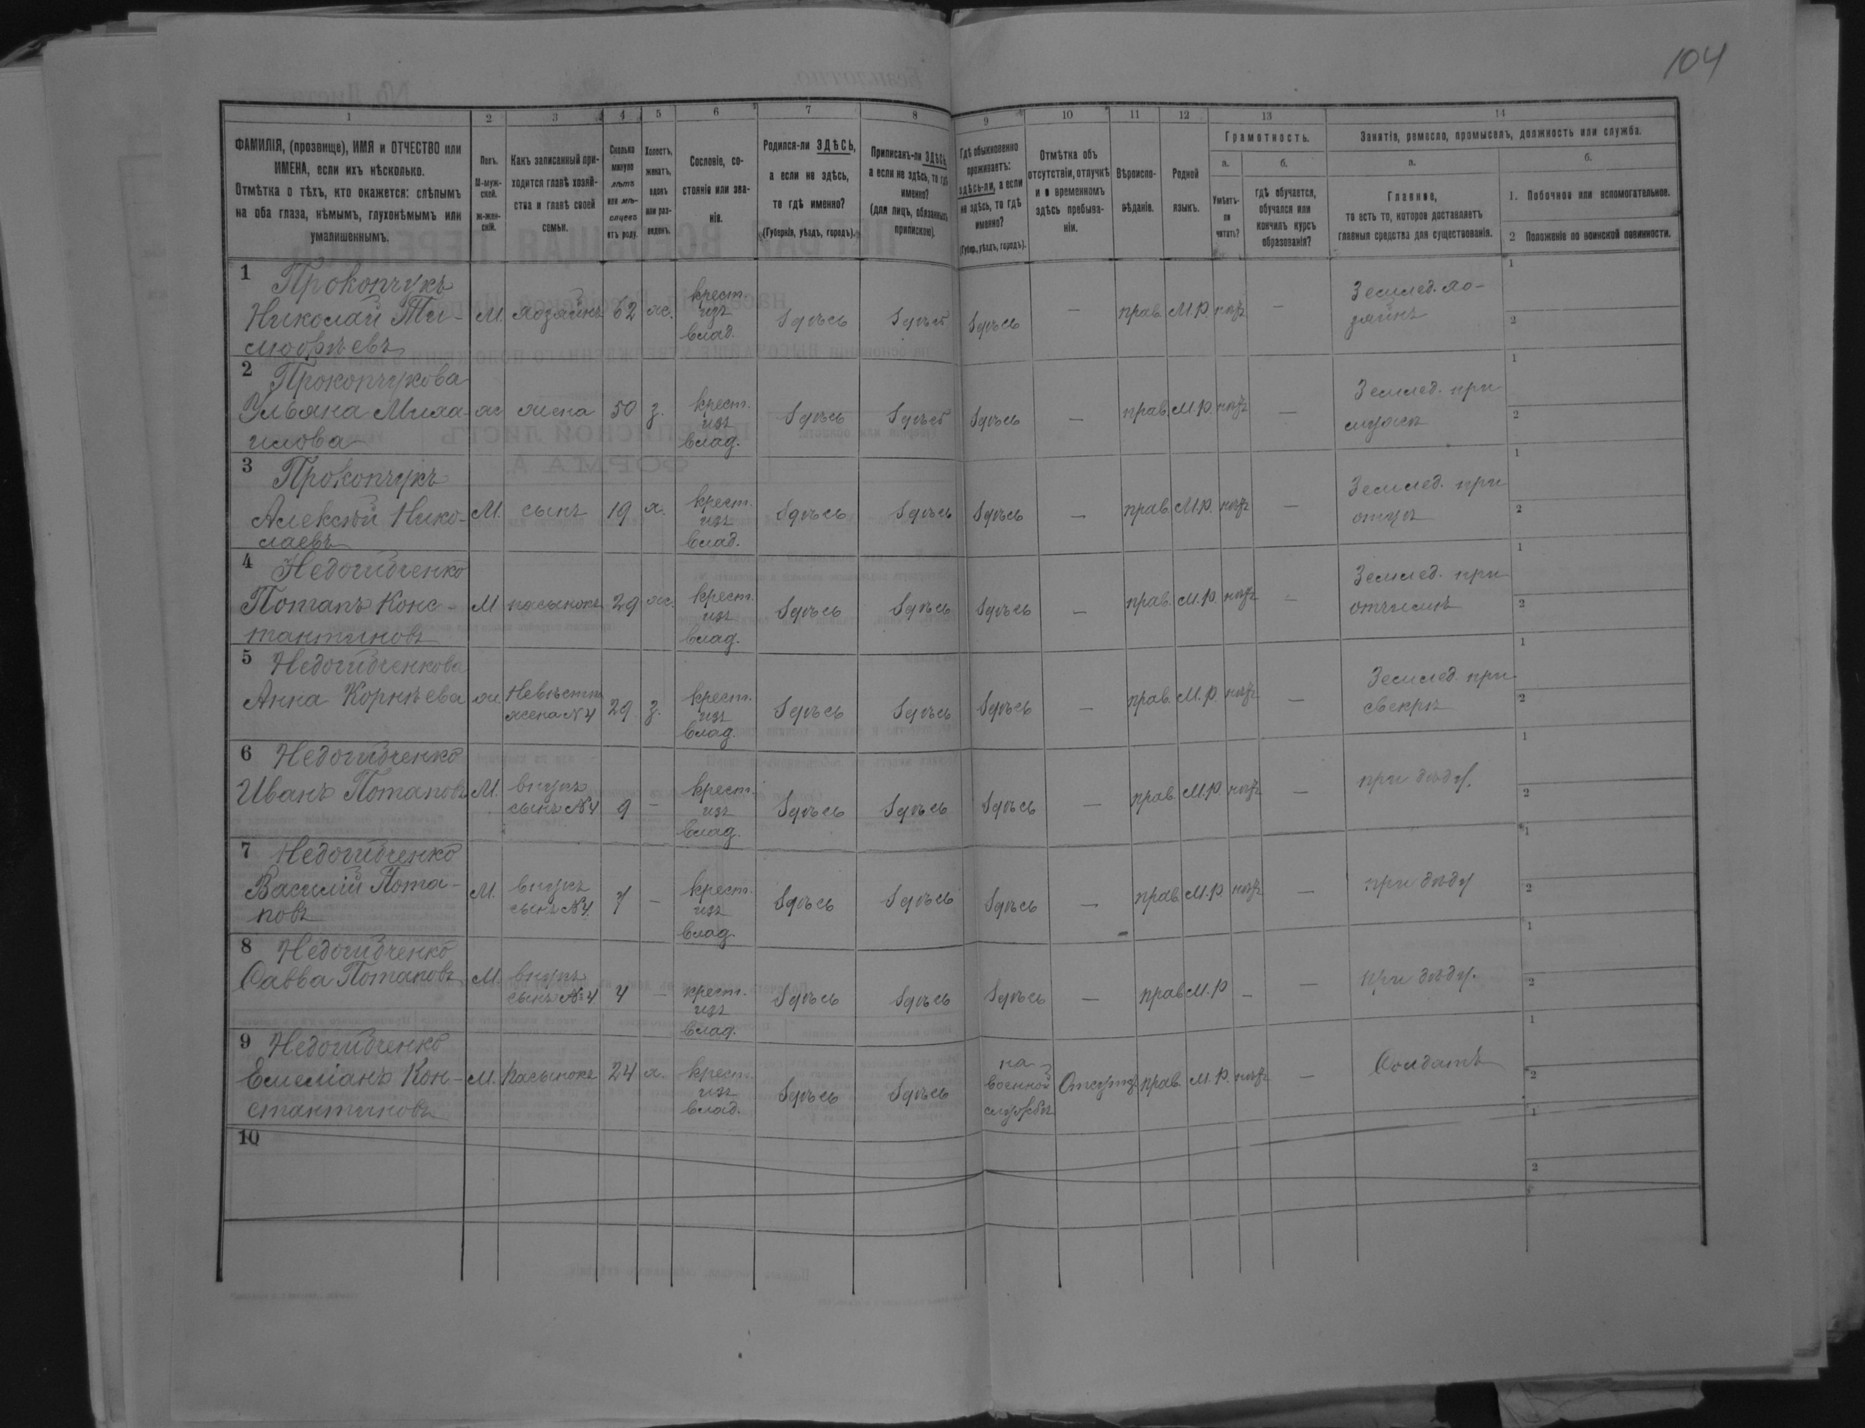 104
1 2 3 4 5 6 7 8 9 10 11 12 13 14
ФАМИЛІЯ, (прозвище), ИМЯ и ОТЧЕСТВО или
ИМЕНА, если ихъ нѣсколько.
Отмѣтка о тѣхъ, кто окажется: слѣпымъ
на оба глаза, нѣмымъ, глухонѣмымъ или
умалишеннымъ.
Полъ.
М-муж-
ской.
ж-жен-
скій.
Какъ записанный при-
ходится главѣ хозяй-
ства и главѣ своей
семьи.
Сколько
минуло
лѣтъ
или мѣ-
сяцевъ
отъ роду.
Холостъ,
женатъ,
вдовъ
или раз-
веденъ.
Сословіе, со-
стояніе или зва-
ніе.
Родился-ли ЗДѢСЬ,
а если не здѣсь,
то гдѣ именно?
(Губернія, уѣздъ, городъ).
Приписанъ-ли ЗДѢСЬ,
а если не здѣсь, то гдѣ
именно?
(для лицъ, обязанныхъ
припиской).
Гдѣ обыкновенно
проживаетъ:
здѣсь-ли, а если
не здѣсь, то гдѣ
именно?
(Губер., уѣздъ, городъ).
Отмѣтка объ
отсутствіи, отлучкѣ
и о временномъ
здѣсь пребыва-
ніи.
Вѣроиспо-
вѣданіе.
Родной
языкъ.
Грамотность.
а.
Умѣетъ-
ли
читать?
б.
гдѣ обучается,
обучался или
кончилъ курсъ
образованія?
Занятія, ремесло, промыселъ, должность или служба.
а.
Главное,
то есть то, которое доставляетъ
главныя средства для существованія.
б.
1. Побочное или вспомогательное.
2 Положеніе по воинской повинности.
1 Прокопчукъ
Николай Ти-
мофѣевъ
М. хозяинъ 62 ж.
крест.
изъ
влад.
Здѣсь Здѣсь Здѣсь — прав. М.р. нѣтъ —
Землед. хо-
зяинъ
1
2
2 Прокопчукова
Ульяна Миха-
илова
ж жена 50 з.
крест.
изъ
влад.
Здѣсь Здѣсь Здѣсь — прав. М.р. нѣтъ —
Землед. при
мужѣ
1
2
3 Прокопчукъ
Алексѣй Нико-
лаевъ
М. сынъ 19 х.
крест.
изъ
влад.
Здѣсь Здѣсь Здѣсь — прав. М.р. нѣтъ —
Землед. при
отцѣ
1
2
4 Недогибченко
Потапъ Конс-
тантиновъ
М пасынокъ 29 ж.
крест.
изъ
влад.
Здѣсь Здѣсь Здѣсь — прав. М.р. нѣтъ —
Землед. при
отчимѣ
1
2
5 Недогибченкова
Анна Корнѣева
ж
Невѣстка
жена №4
29 з.
крест.
изъ
влад.
Здѣсь Здѣсь Здѣсь — прав. М.р. нѣтъ —
Землед. при
свекрѣ
1
2
6 Недогибченко
Иванъ Потаповъ
М.
внукъ
сынъ №4
9 —
крест.
изъ
влад.
Здѣсь Здѣсь Здѣсь — прав. М.р. нѣтъ —
при дѣду.
1
2
7 Недогибченко
Василій Пота-
повъ
М.
внукъ
сынъ №4
7 —
крест.
изъ
влад.
Здѣсь Здѣсь Здѣсь — прав. М.р. нѣтъ —
при дѣду
1
2
8 Недогибченко
Савва Потаповъ
М.
внукъ
сынъ №4
4 —
крест.
изъ
влад.
Здѣсь Здѣсь Здѣсь — прав М.р — —
при дѣду.
1
2
9 Недогибченко
Емеліанъ Кон-
стантиновъ
М. пасынокъ 24 х.
крест.
изъ
влад.
Здѣсь Здѣсь
на
военной
службѣ
Отсутст. прав. М.р. нѣтъ —
Солдатъ
1
2
10
1
2